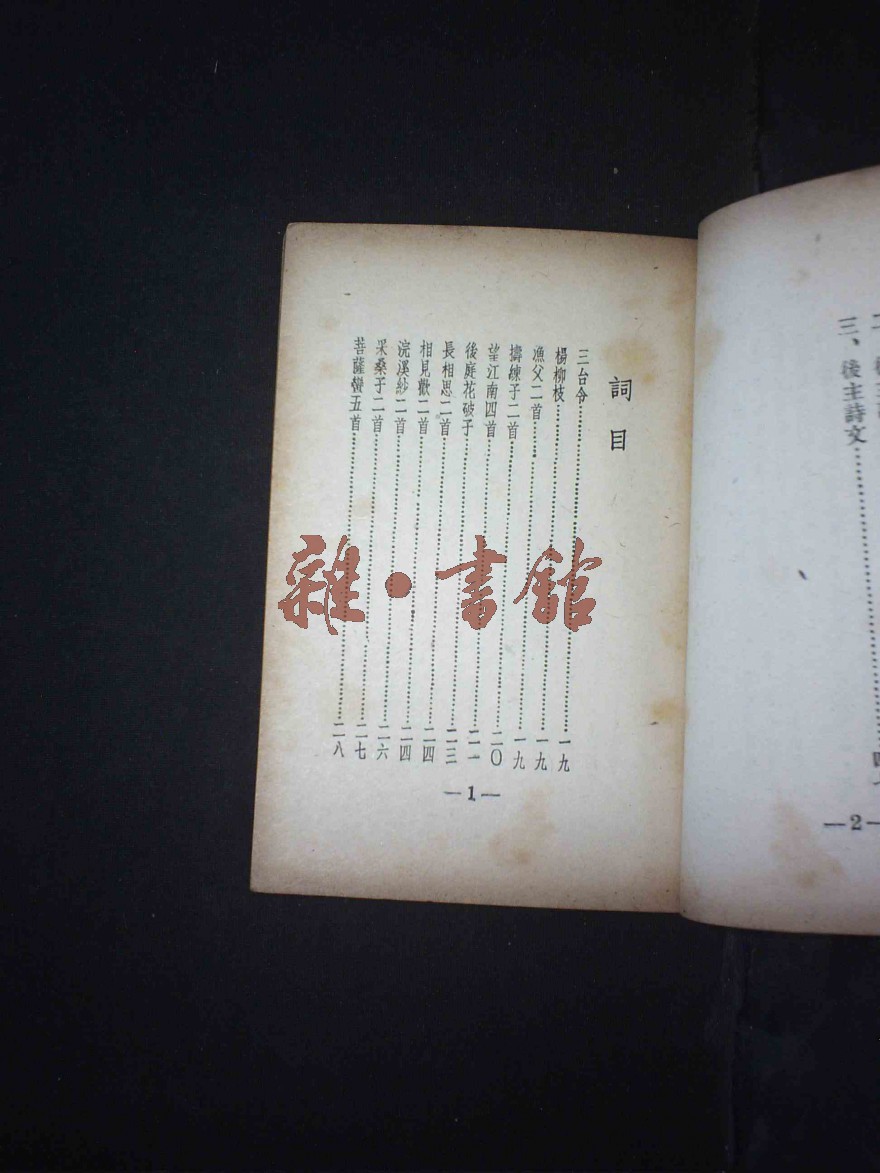 三、後主詩文
—2—
詞目
三台令……一九
楊柳枝……一九
漁父二首……一九
擣練子二首……二〇
望江南四首……二一
後庭花破子……二三
長相思二首……二四
相見歡二首……二四
浣溪紗二首……二六
采桑子二首……二七
菩薩蠻五首……二八
—1—
雜·書館